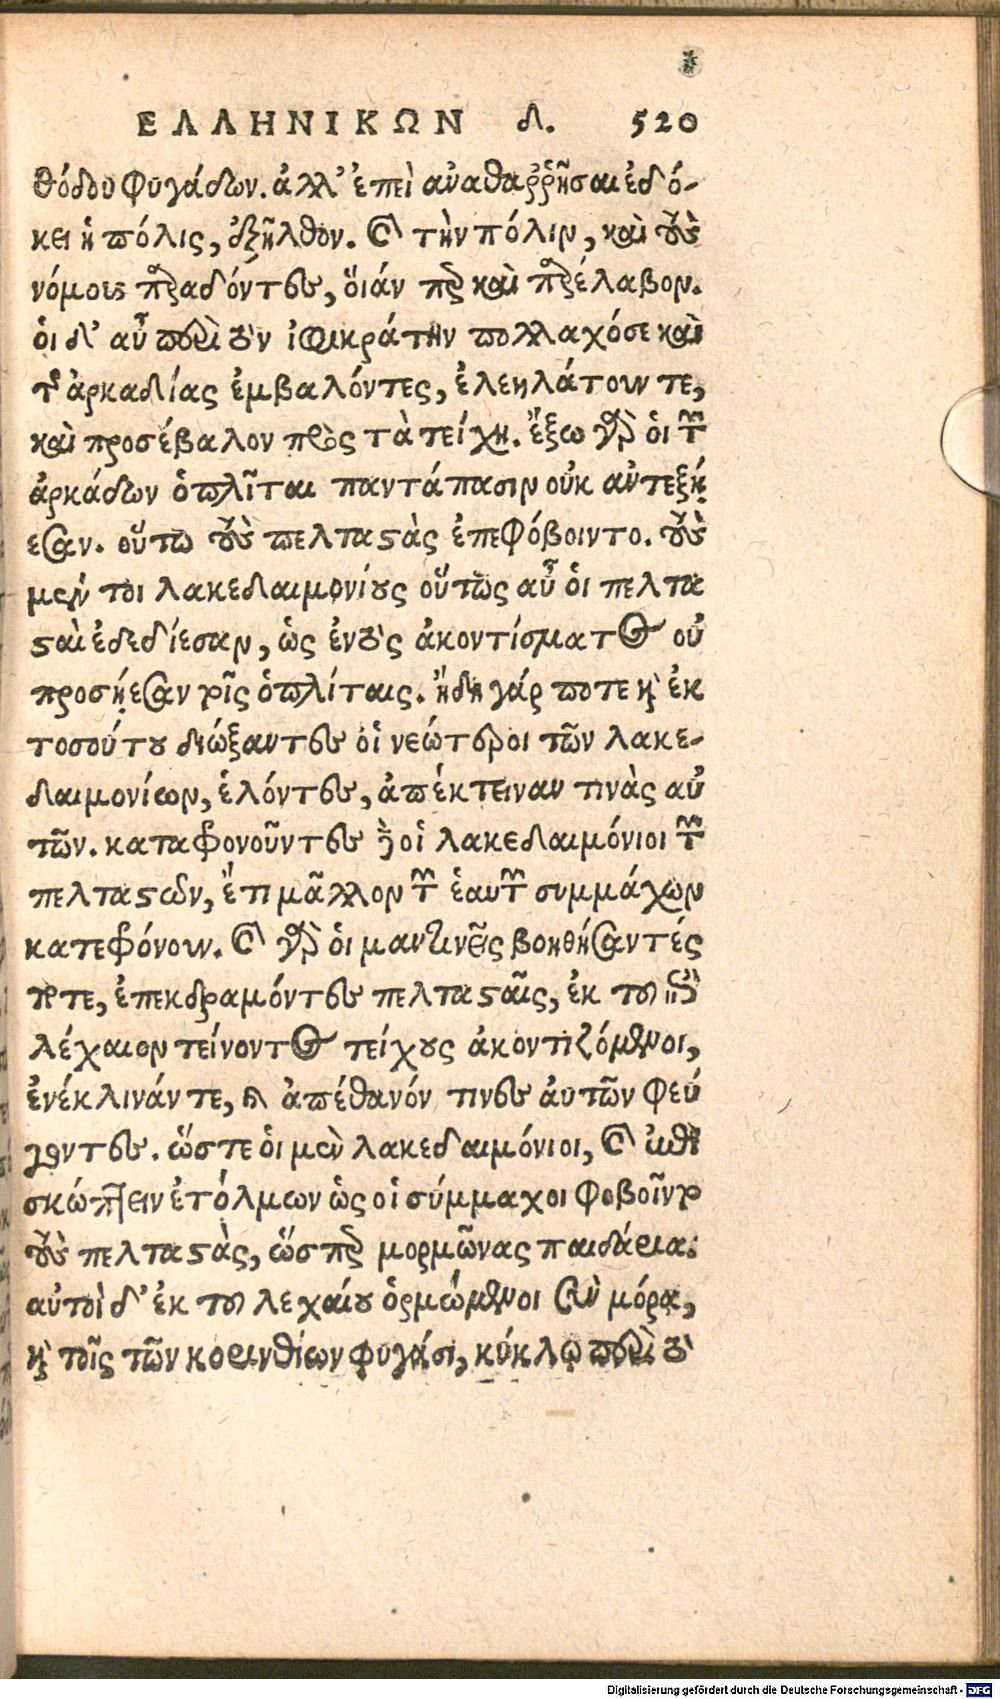 ΕΛΛΗΝΙΚΩΝ δ. 520
θόδου φυγάδων. ἀλλ' ἐπεὶ ἀναθαῤῥῆσαι ἐδό-
κει ἡ πόλις, ἐξῆλθον. καὶ τὴν πόλιν, καὶ τοὺς
νόμους παραδόντες, ὅιάν περ καὶ παρέλαβον.
ὁι δ' αὖ περὶ τὸν ἰφικράτην πολλαχόσε καὶ
τῆς ἀρκαδίας ἐμβαλόντες, ἐλεηλάτουν τε,
καὶ προσέβαλον πρὸς τὰ τείχη. ἔξω γὰρ ὁι τῶν
ἀρκάδων ὁπλῖται παντάπασιν οὐκ ἀντεξή
εσαν. οὕτω τοὺς πελταστὰς ἐπεφόβοιντο. τοὺς
μέν τοι λακεδαιμονίους οὕτως αὖ ὁι πελτα
σταὶ ἐδεδίεσαν, ὡς ἐντὸς ἀκοντίσματος οὐ
προσήεσαν τοῖς ὁπλίταις. ἤδη γάρ ποτε καὶ ἐκ
τοσούτου διώξαντες οἱ νεώτεροι τῶν λακε-
δαιμονίων, ἑλόντες, ἀπέκτειναν τινὰς αὐ
τῶν. καταφονοῦντες δὲ οἱ λακεδαιμόνιοι τῶν
πελταστῶν, ἔτι μᾶλλον τῶν ἑαυτῶν συμμάχων
κατεφόνουν. καὶ γὰρ ὁι μαντινεῖς βοηθήσαντές
ποτε, ἐπεκδραμόντες πελτασταῖς, ἐκ τοῦ ἐπὶ
λέχαιον τείνοντος τείχους ἀκοντιζόμενοι,
ἐνέκλινάν τε, καὶ ἀπέθανόν τινες ἀυτῶν φεύ
γοντες. ὥστε ὁι μὲν λακεδαιμόνιοι, καὶ ἐπι
σκώπτειν ἐτόλμων ὡς οἱ σύμμαχοι φοβοῖντο
τοὺς πελταστὰς, ὥσπερ μορμῶνας παιδάρια:
αὐτοὶ δ' ἐκ τοῦ λεχαίου ὁρμώμενοι σὺν μόρᾳ,
καὶ τοῖς τῶν κορινθίων φυγάσι, κύκλῳ περὶ τὸ
Digitalisierung gefördert durch die Deutsche Forschungsgemeinschaft - DFG